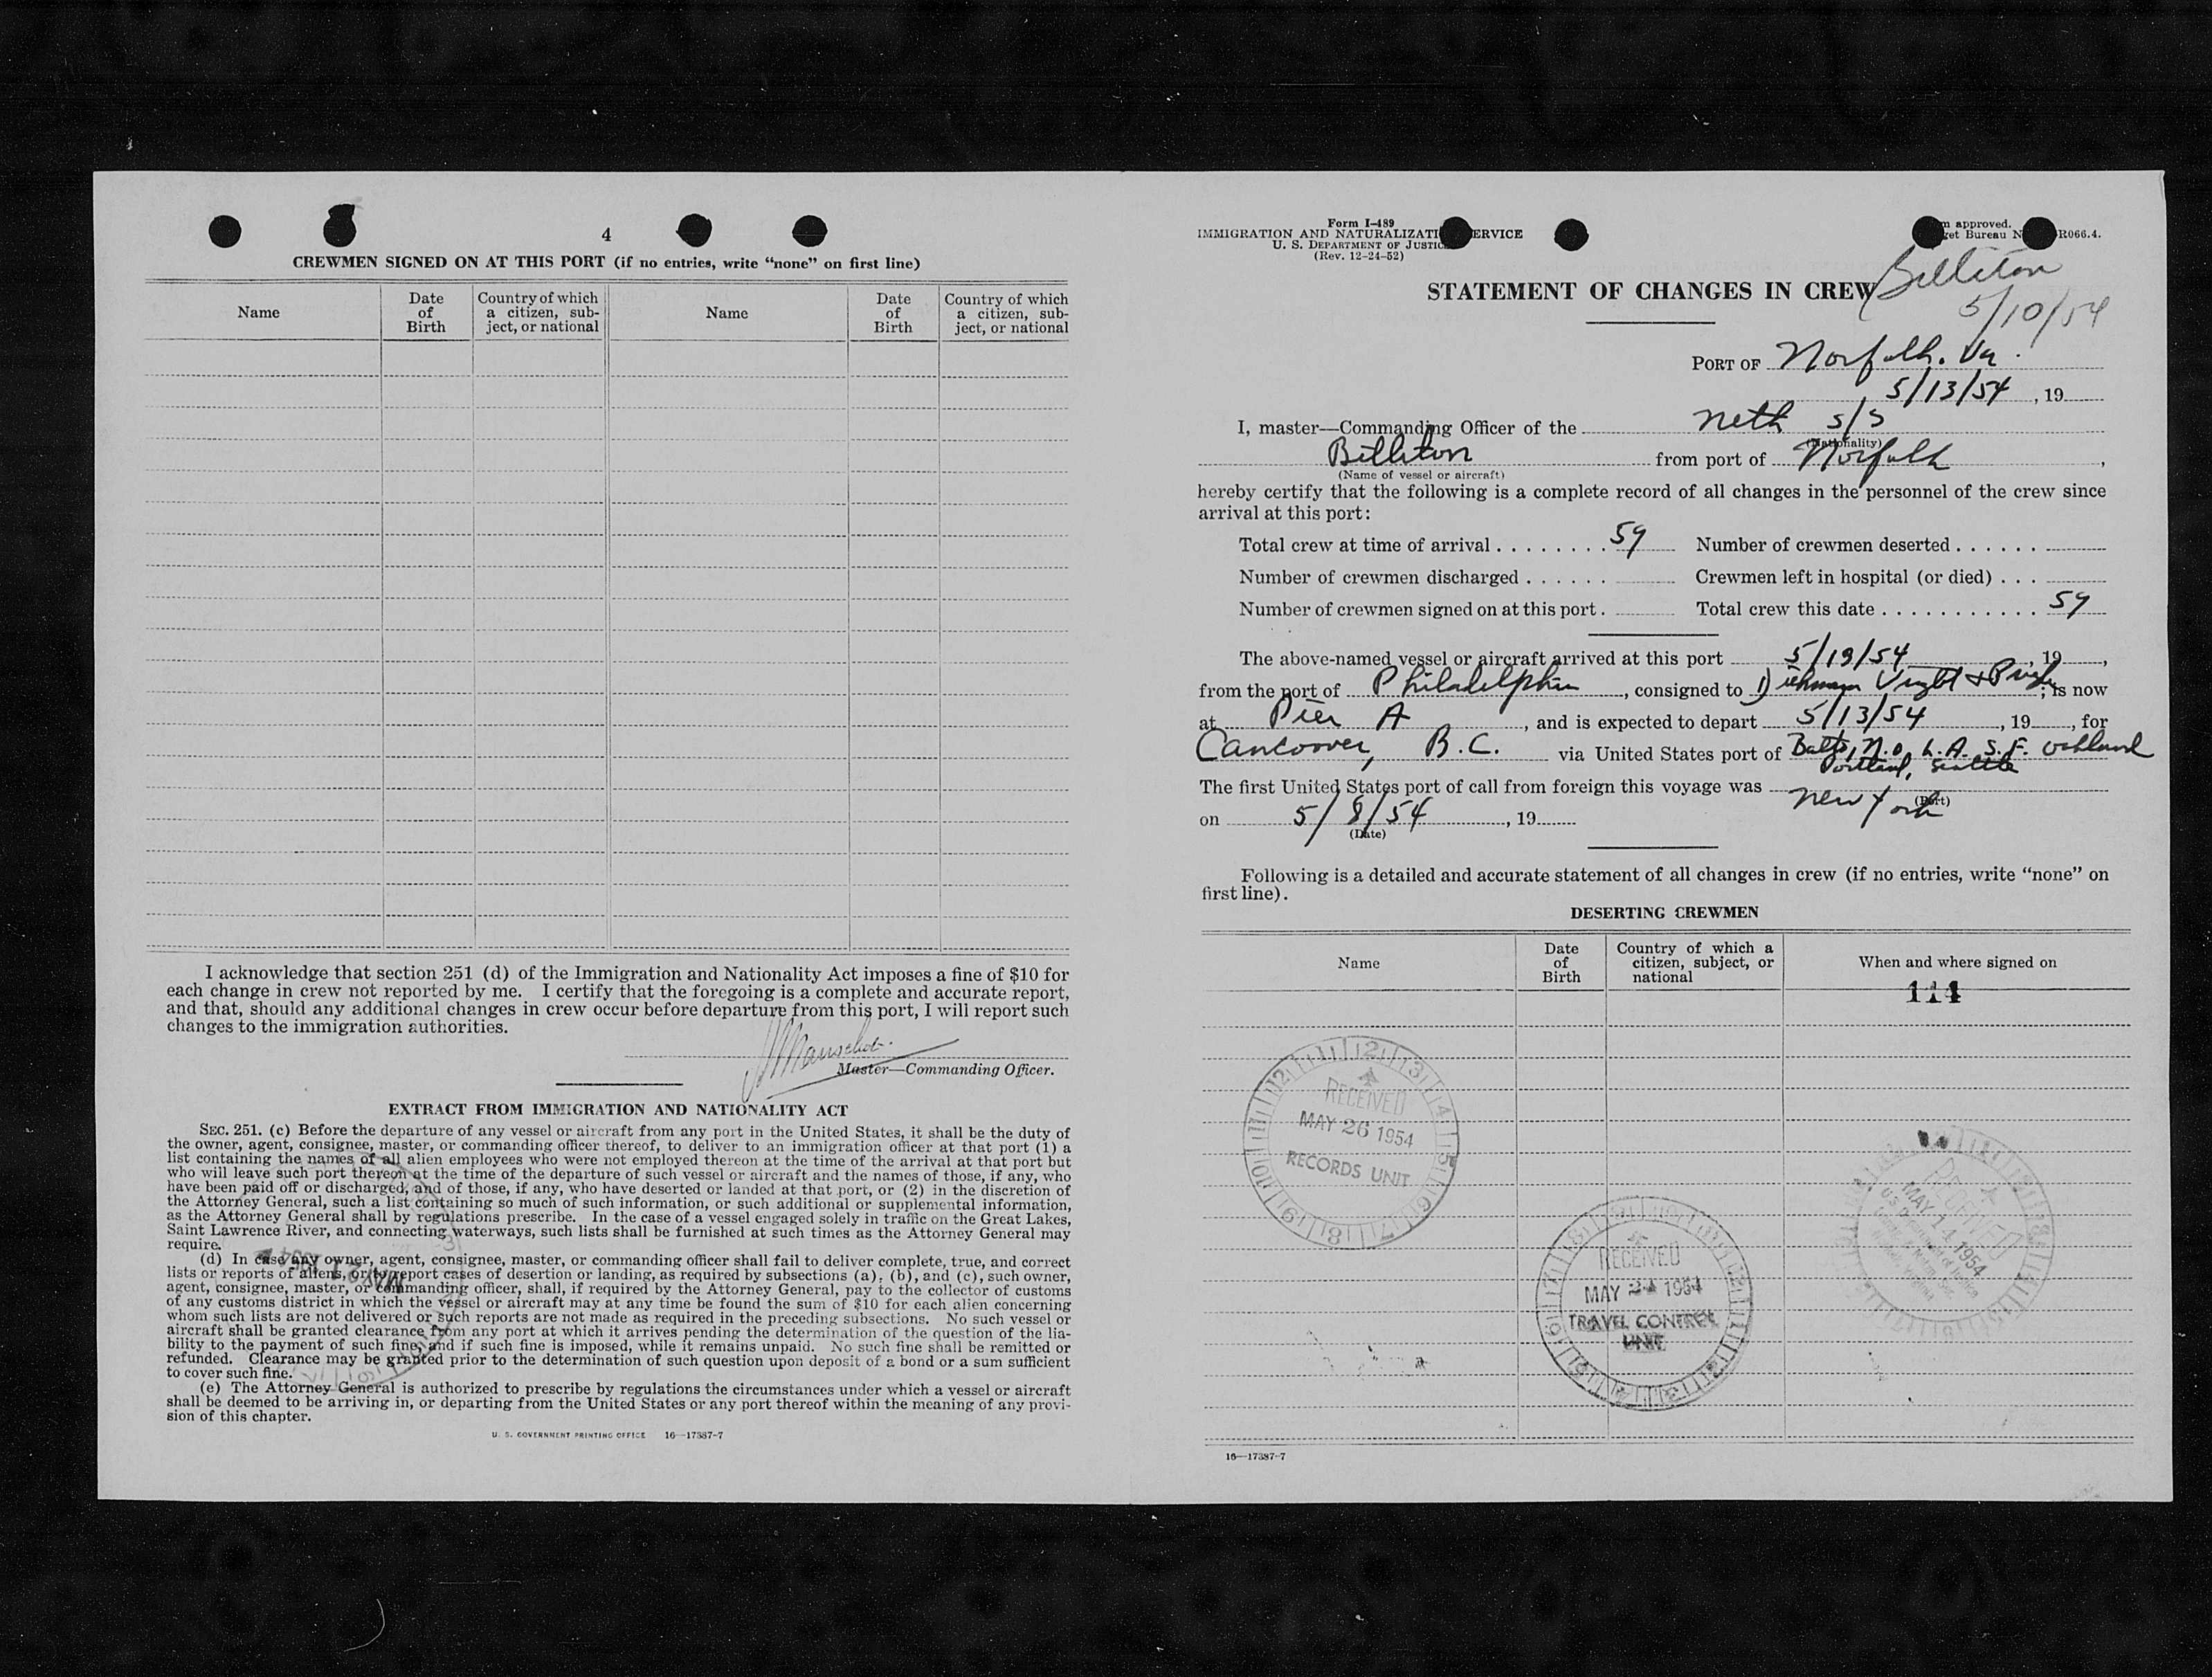 4
CREWMEN SIGNED ON AT THIS PORT (if no entries, write “none” on first line)
Name
Date of Birth
Country of which a citizen, sub-ject, or national
Name
Date of Birth
Country of which a citizen, sub-ject, or national
I acknowledge that section 251 (d) of the Immigration and Nationality Act imposes a fine of $10 for
each change in crew not reported by me. I certify that the foregoing is a complete and accurate report,
and that, should any additional changes in crew occur before departure from this port, I will report such
changes to the immigration authorities.
Master—Commanding Officer.
EXTRACT FROM IMMIGRATION AND NATIONALITY ACT
SEC. 251. (c) Before the departure of any vessel or aircraft from any port in the United States, it shall be the duty of
the owner, agent, consignee, master, or commanding officer thereof, to deliver to an immigration officer at that port (1) a
list containing the names of all alien employees who were not employed thereon at the time of the arrival at that port but
who will leave such port thereon at the time of the departure of such vessel or aircraft and the names of those, if any, who
have been paid off or discharged, and of those, if any, who have deserted or landed at that port, or (2) in the discretion of
the Attorney General, such a list containing so much of such information, or such additional or supplemental information,
as the Attorney General shall by regulations prescribe. In the case of a vessel engaged solely in traffic on the Great Lakes,
Saint Lawrence River, and connecting waterways, such lists shall be furnished at such times as the Attorney General may
require.
(d) In case any owner, agent, consignee, master, or commanding officer shall fail to deliver complete, true, and correct
lists or reports of aliens, or to report cases of desertion or landing, as required by subsections (a), (b), and (c), such owner,
agent, consignee, master, or commanding officer, shall, if required by the Attorney General, pay to the collector of customs
of any customs district in which the vessel or aircraft may at any time be found the sum of $10 for each alien concerning
whom such lists are not delivered or such reports are not made as required in the preceding subsections. No such vessel or
aircraft shall be granted clearance from any port at which it arrives pending the determination of the question of the lia-
bility to the payment of such fine, and if such fine is imposed, while it remains unpaid. No such fine shall be remitted or
refunded. Clearance may be granted prior to the determination of such question upon deposit of a bond or a sum sufficient
to cover such fine.
(e) The Attorney General is authorized to prescribe by regulations the circumstances under which a vessel or aircraft
shall be deemed to be arriving in, or departing from the United States or any port thereof within the meaning of any provi-
sion of this chapter.
U. S. GOVERNMENT PRINTING OFFICE 16—17387-7
Form I-489
IMMIGRATION AND NATURALIZATI ERVICE
U. S. DEPARTMENT OF JUSTIC
(Rev. 12-24-52)
m approved.
get Bureau N R066.4.
Billiton
5/10/54
STATEMENT OF CHANGES IN CREW
PORT OF Norfolk. Va.
5/13/54, 19
I, master—Commanding Officer of the Neth s/s
(Nationality)
Billiton from port of Norfolk,
(Name of vessel or aircraft)
hereby certify that the following is a complete record of all changes in the personnel of the crew since
arrival at this port:
Total crew at time of arrival 59 Number of crewmen deserted
Number of crewmen discharged Crewmen left in hospital (or died)
Number of crewmen signed on at this port. Total crew this date 59
The above-named vessel or aircraft arrived at this port 5/13/54, 19,
from the port of Philadelphia, consigned to ; is now
at Pier A, and is expected to depart 5/13/54, 19, for
Vancouver, B.C. via United States port of Balto, N.O, L.A. S.F. Oakland
Portland, Seattle
The first United States port of call from foreign this voyage was New York
(Port)
on 5/8/54, 19
(Date)
Following is a detailed and accurate statement of all changes in crew (if no entries, write “none” on
first line).
DESERTING CREWMEN
Name
Date of Birth
Country of which a citizen, subject, or national
When and where signed on
114
RECEIVED
MAY 26 1954
RECORDS UNIT
RECEIVED
MAY 24 1954
TRAVEL CONTROL
UNIT
RECEIVED
MAY 14 1954
16—17387-7